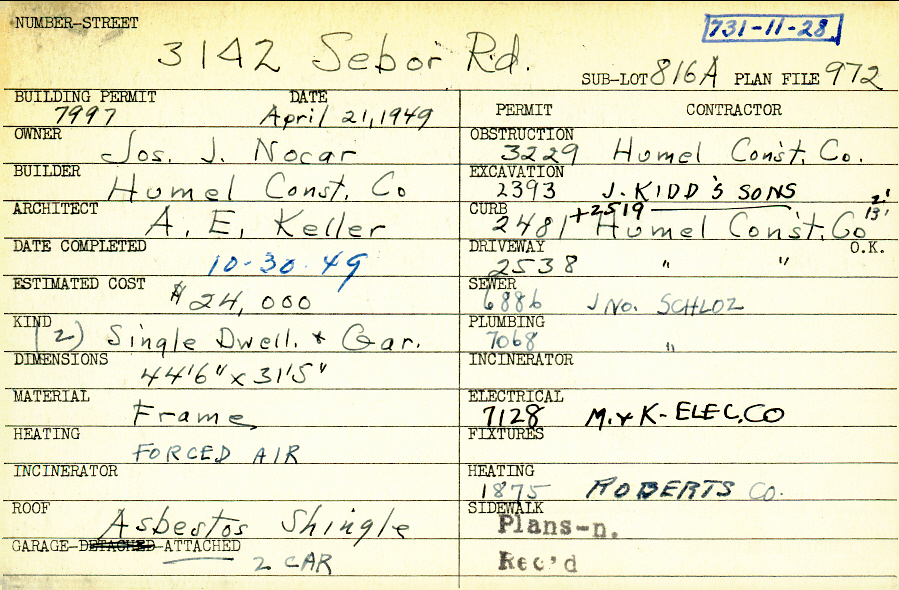 NUMBER-STREET
731-11-28
3142 Sebor Rd.
SUB-LOT 816A PLAN FILE 972
BUILDING PERMIT DATE
7997 April 21, 1949
OWNER
Jos. J. Nocar
BUILDER
Humel Const. Co
ARCHITECT
A. E. Keller
DATE COMPLETED
10-30-49
ESTIMATED COST
$24,000
KIND
(2) Single Dwell. + Gar.
DIMENSIONS
44'6" x 31'5"
MATERIAL
Frame
HEATING
FORCED AIR
INCINERATOR
ROOF
Asbestos Shingle
GARAGE-DETACHED-ATTACHED
2 CAR
PERMIT CONTRACTOR
OBSTRUCTION
3229 Humel Const. Co.
EXCAVATION
2393 J. KIDD'S SONS
CURB
2481 +2519 Humel Const. Co 2' 13'
DRIVEWAY O.K.
2538 " "
SEWER
6886 JNO. SCHLOZ
PLUMBING
7068 "
INCINERATOR
ELECTRICAL
7128 M. & K- ELEC. CO
FIXTURES
HEATING
1875 ROBERTS CO.
SIDEWALK
Plans-n.
Rec'd